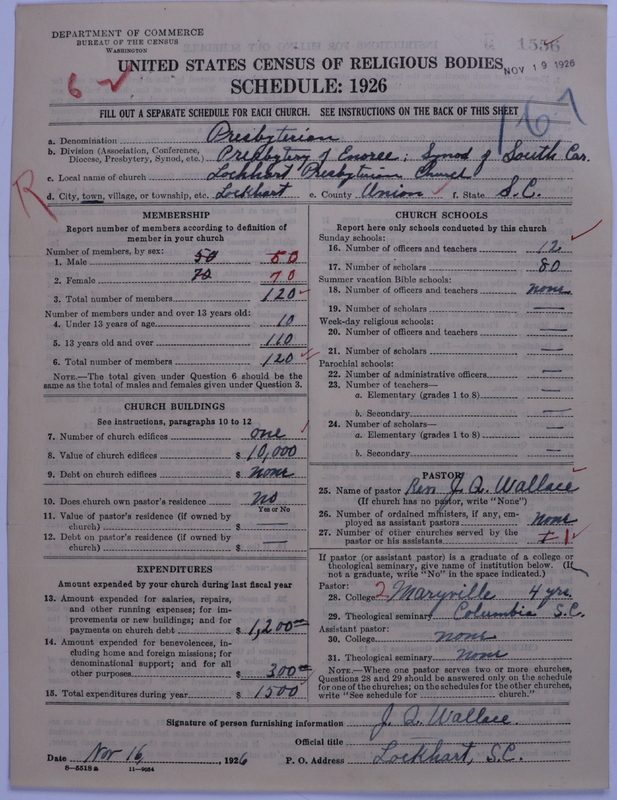 DEPARTMENT OF COMMERCE
BUREAU OF THE CENSUS
WASHINGTON
1556
NOV 19 1926
UNITED STATES CENSUS OF RELIGIOUS BODIES
6
SCHEDULE: 1926
FILL OUT A SEPARATE SCHEDULE FOR EACH CHURCH. SEE INSTRUCTIONS ON THE BACK OF THIS SHEET
167
a. Denomination Presbyterian
b. Division (Association, Conference, Diocese, Presbytery, Synod, etc.) Presbytery of Enoree; Synod of South Car.
c. Local name of church Lockhart Presbyterian Church
R
d. City, town, village, or township, etc. Lockhart e. County Union f. State S.C.
MEMBERSHIP
Report number of members according to definition of
member in your church
Number of members, by sex:
1. Male 50 50
2. Female 70 70
3. Total number of members 120
Number of members under and over 13 years old:
4. Under 13 years of age 10
5. 13 years old and over 110
6. Total number of members 120
NOTE.—The total given under Question 6 should be the
same as the total of males and females given under Question 3.
CHURCH BUILDINGS
See instructions, paragraphs 10 to 12
7. Number of church edifices one
8. Value of church edifices $ 10,000
9. Debt on church edifices $ none
10. Does church own pastor's residence no
Yes or No
11. Value of pastor's residence (if owned by
church) $ —
12. Debt on pastor's residence (if owned by
church) $ —
EXPENDITURES
Amount expended by your church during last fiscal year
13. Amount expended for salaries, repairs,
and other running expenses; for im-
provements or new buildings; and for
payments on church debt $ 1,200 00
14. Amount expended for benevolences, in-
cluding home and foreign missions; for
denominational support; and for all
other purposes $ 300 00
15. Total expenditures during year $ 1500
CHURCH SCHOOLS
Report here only schools conducted by this church
Sunday schools:
16. Number of officers and teachers 12
17. Number of scholars 80
Summer vacation Bible schools:
18. Number of officers and teachers none
19. Number of scholars —
Week-day religious schools:
20. Number of officers and teachers —
21. Number of scholars —
Parochial schools:
22. Number of administrative officers —
23. Number of teachers—
a. Elementary (grades 1 to 8) —
b. Secondary —
24. Number of scholars—
a. Elementary (grades 1 to 8) —
b. Secondary —
PASTOR
25. Name of pastor Rev. J. Q. Wallace
(If church has no pastor, write "None")
26. Number of ordained ministers, if any, em-
ployed as assistant pastors none
27. Number of other churches served by the
pastor or his assistants 1
If pastor (or assistant pastor) is a graduate of a college or
theological seminary, give name of institution below. (If
not a graduate, write "No" in the space indicated.)
Pastor:
28. College 2 Maryville 4 yrs.
29. Theological seminary Columbia S.C.
Assistant pastor:
30. College none
31. Theological seminary none
NOTE.—Where one pastor serves two or more churches,
Questions 28 and 29 should be answered only on the schedule
for one of the churches; on the schedules for the other churches,
write "See schedule for church."
Signature of person furnishing information J. Q. Wallace
Official title
Date Nov 16, 1926 P. O. Address Lockhart, S.C.
8—5518 a 11—9054